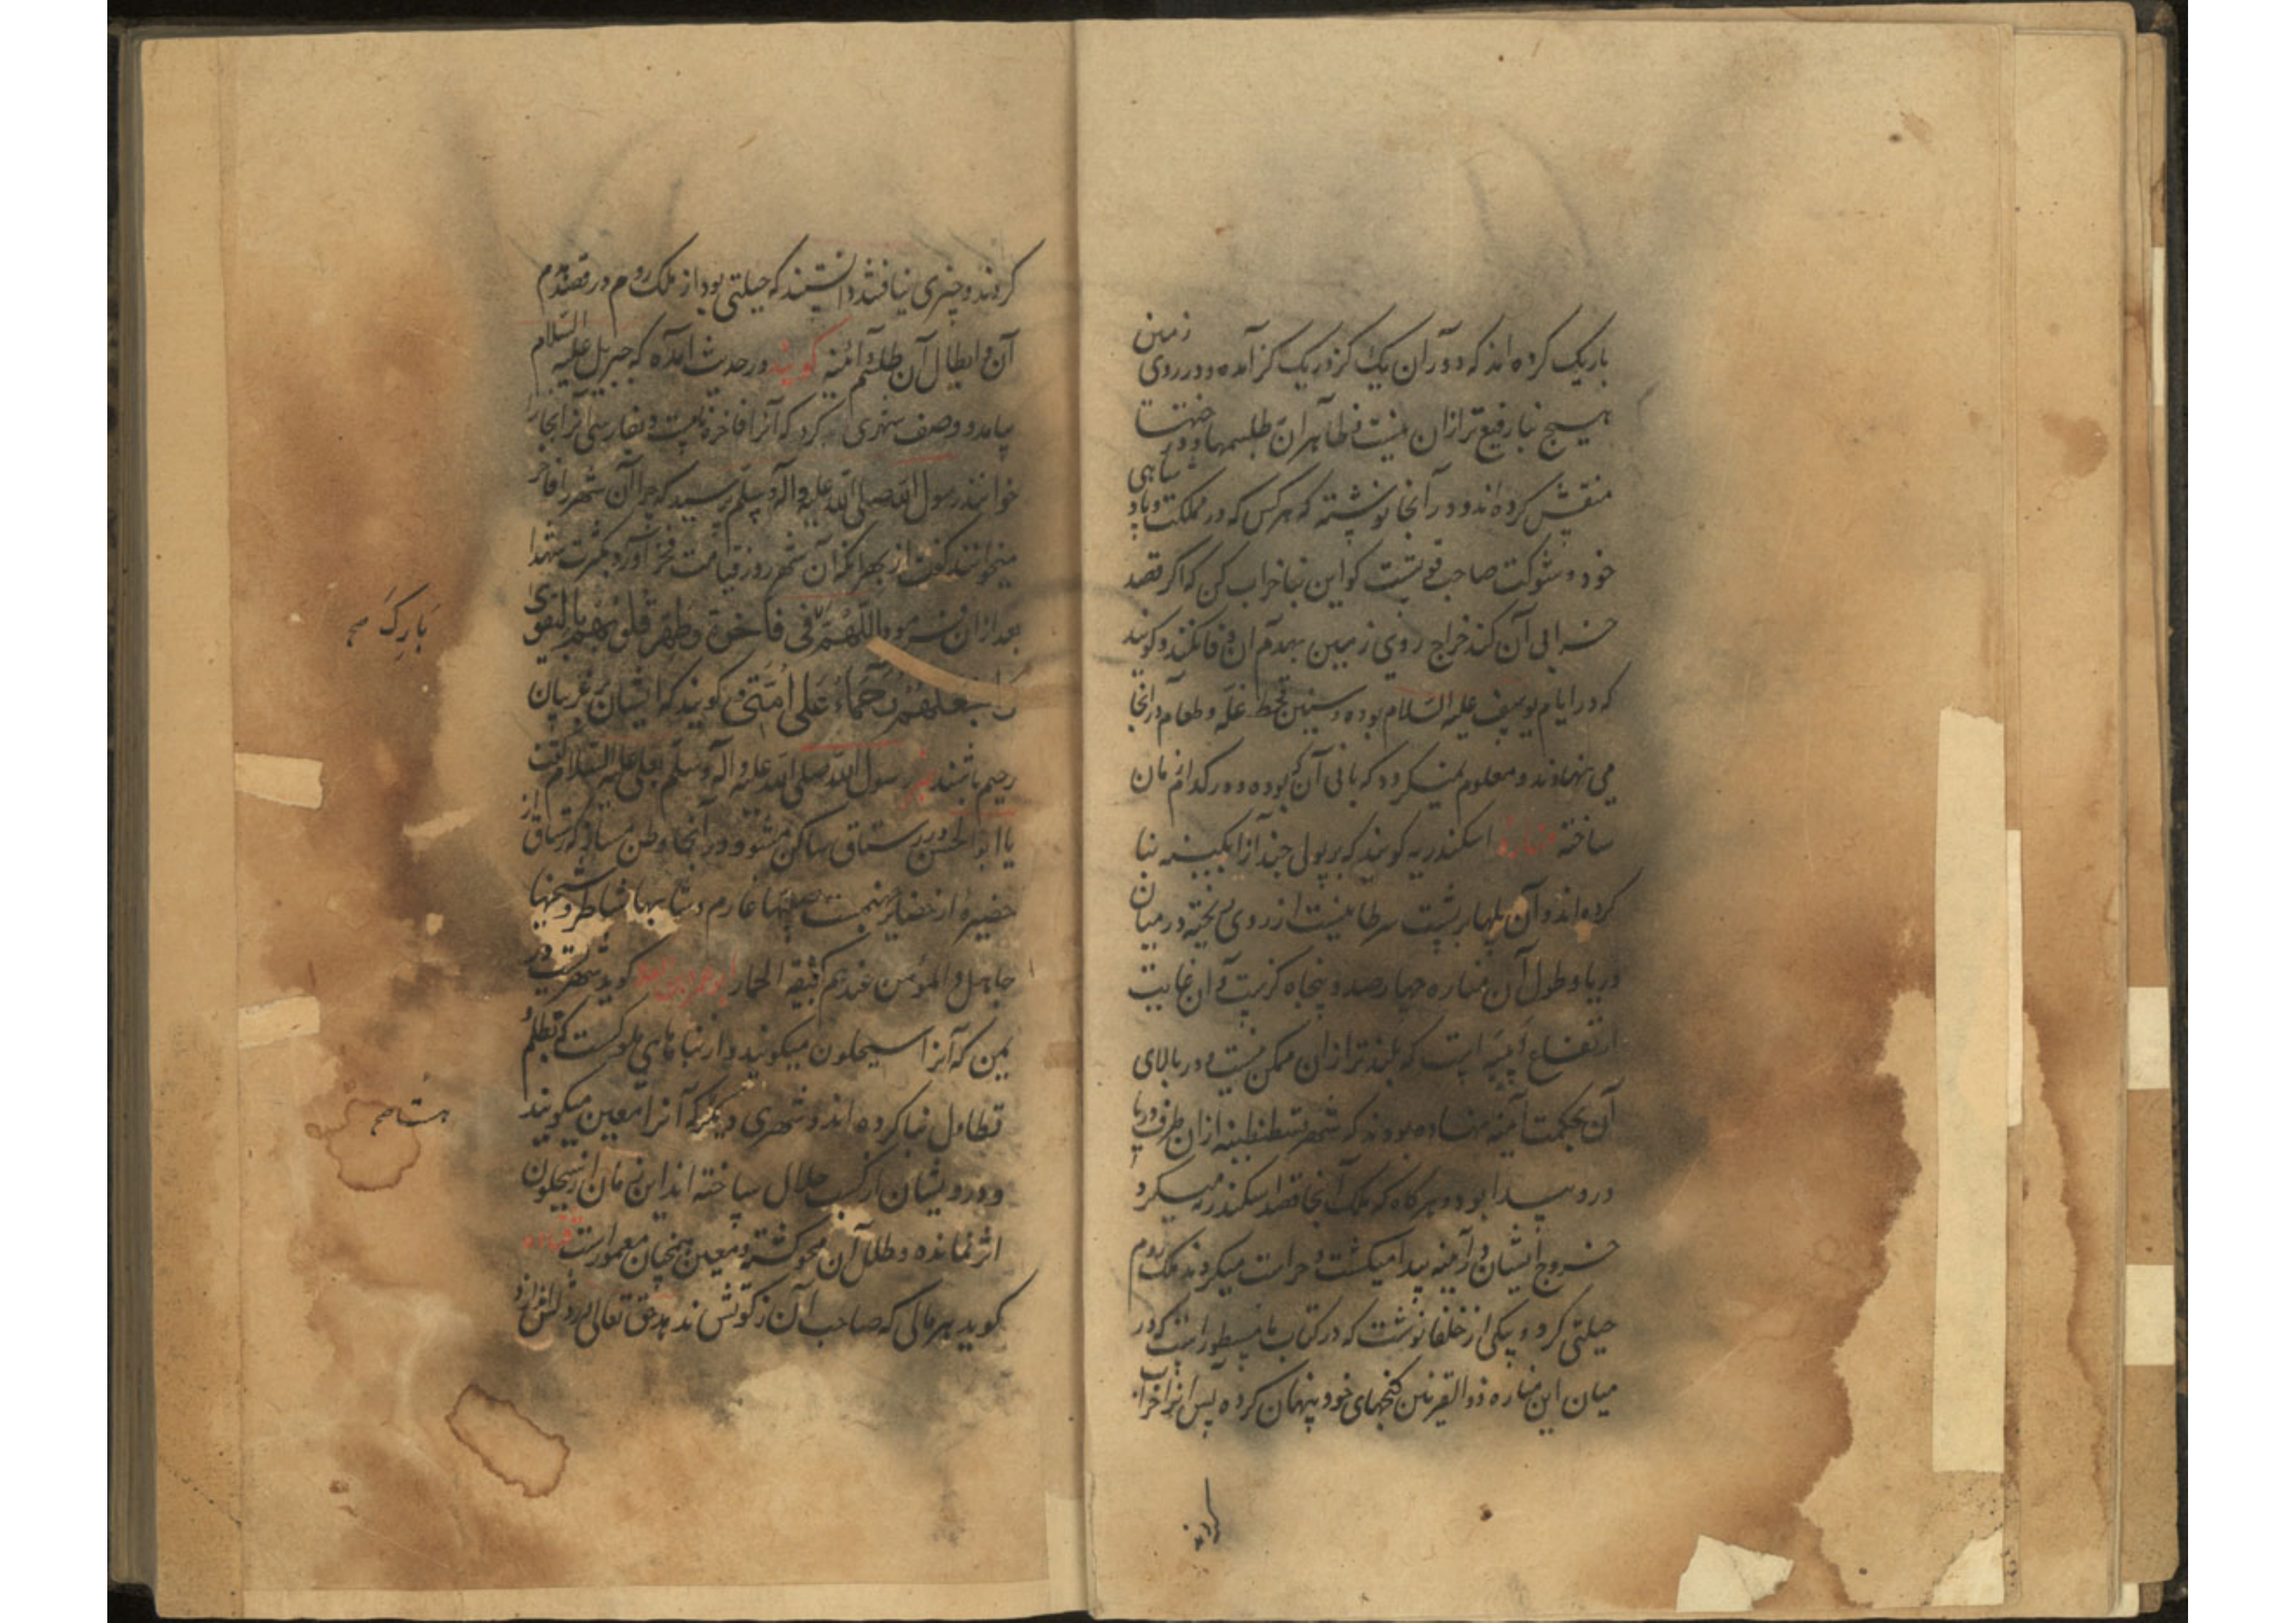 باریک کرده اند که دوران یک کز در یک کز آمده و در روی زمین
هیچ بنا رفیع تر از آن نیست ظاهر آن طلسمها و در
منقش کرده اند و در آنجا نوشته که هرکس که در مملکت و پادشاهی
خود و شوکت صاحب قوتست کو این بنا خراب کن که اکر قصد
خرابی آن کند خراج روی زمین بهدم آن وفا نکند و کویند
که در ایام یوسف علیه السلام بوده و سنین قحط غله و طعام در آنجا
می نهادند و معلوم نمیکردد که بانی آن که بوده و در کدام زمان
ساخته مناره اسکندریه کویند که بر پولی چند از آبکینه بنا
کرده اند و آن پلها بر پشت سرطانیست از روی ریخته در میان
دریا و طول آن مناره چهارصد و پنجاه کزست و آن غایت
ارتفاع ابنیه است که بلندتر از آن ممکن نیست و در بالای
آن بحکمت آینه نهاده بودند که شهر قسطنطینیه از آن طرف دریا
درو پیدا بود و هرکاه که ملک آنجا قصد اسکندریه میکرد
خروج ایشان در آینه پیدا میکشت و حراست میکردند ملک روم
حیلتی کرد و بیکی از خلفا نوشت که در کتاب ما مسطور است که در
میان این مناره ذوالقرنین کنجهای خود پنهان کرده پس آنرا خراب
کردند
کردند و چیزی نیافتند دانستند که حیلتی بود از ملک روم در قصد هدم
آن و ابطال آن طلسم آینه کویند در حدیث آمده که جبریل علیه السلام
بیامد و وصف شهری کرد که آنرا فاخره نامست و بفارسی آنرا بخارا
خوانند رسول الله صلی الله علیه و آله و سلم پرسید که چرا آن شهر را فاخره
میخوانند کفت از بهر آنکه آن شهر روز قیامت فخر آورد بکثرت شهدا
بعد از آن فرمود اللهم فی فاخرة وطهر قلوبهم بالتقوی
بارک صح
واجعلهم رحماء علی امتی کویند که ایشان بر غریبان
رحیم باشند رسول الله صلی الله علیه و آله و سلم بعلی علیه السلام کفت
یا ابا الحسن در رستاق ساکن مشو و در آنجا وطن مساز که رستاق از
حضیره از حضایر جهنمست و شابها شاطر و شیخها
جاهل و المؤمن عندهم کجیفة الحمار کوید شهریست در
یمن که آنرا سیحلون میکویند و از بناهای ملوکست که بظلم و
تطاول بنا کرده اند و شهری دیکر که آنرا معین میکویند
هستا صح
و درویشان از کسب حلال ساخته اند این زمان از سیحلون
اثر نمانده و طلل آن محو کشته و معین همچنان معمور است قتاده
کوید هر مالی که صاحب آن زکوتش ندهد حق تعالی